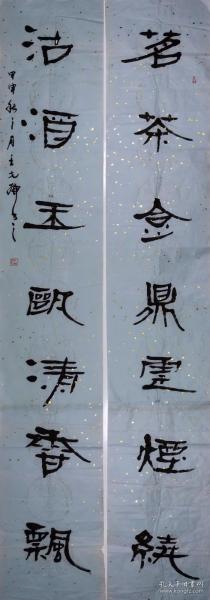 茗茶金鼎雲煙繞
沽酒玉甌清香飄
甲申秋
孔夫子旧书网